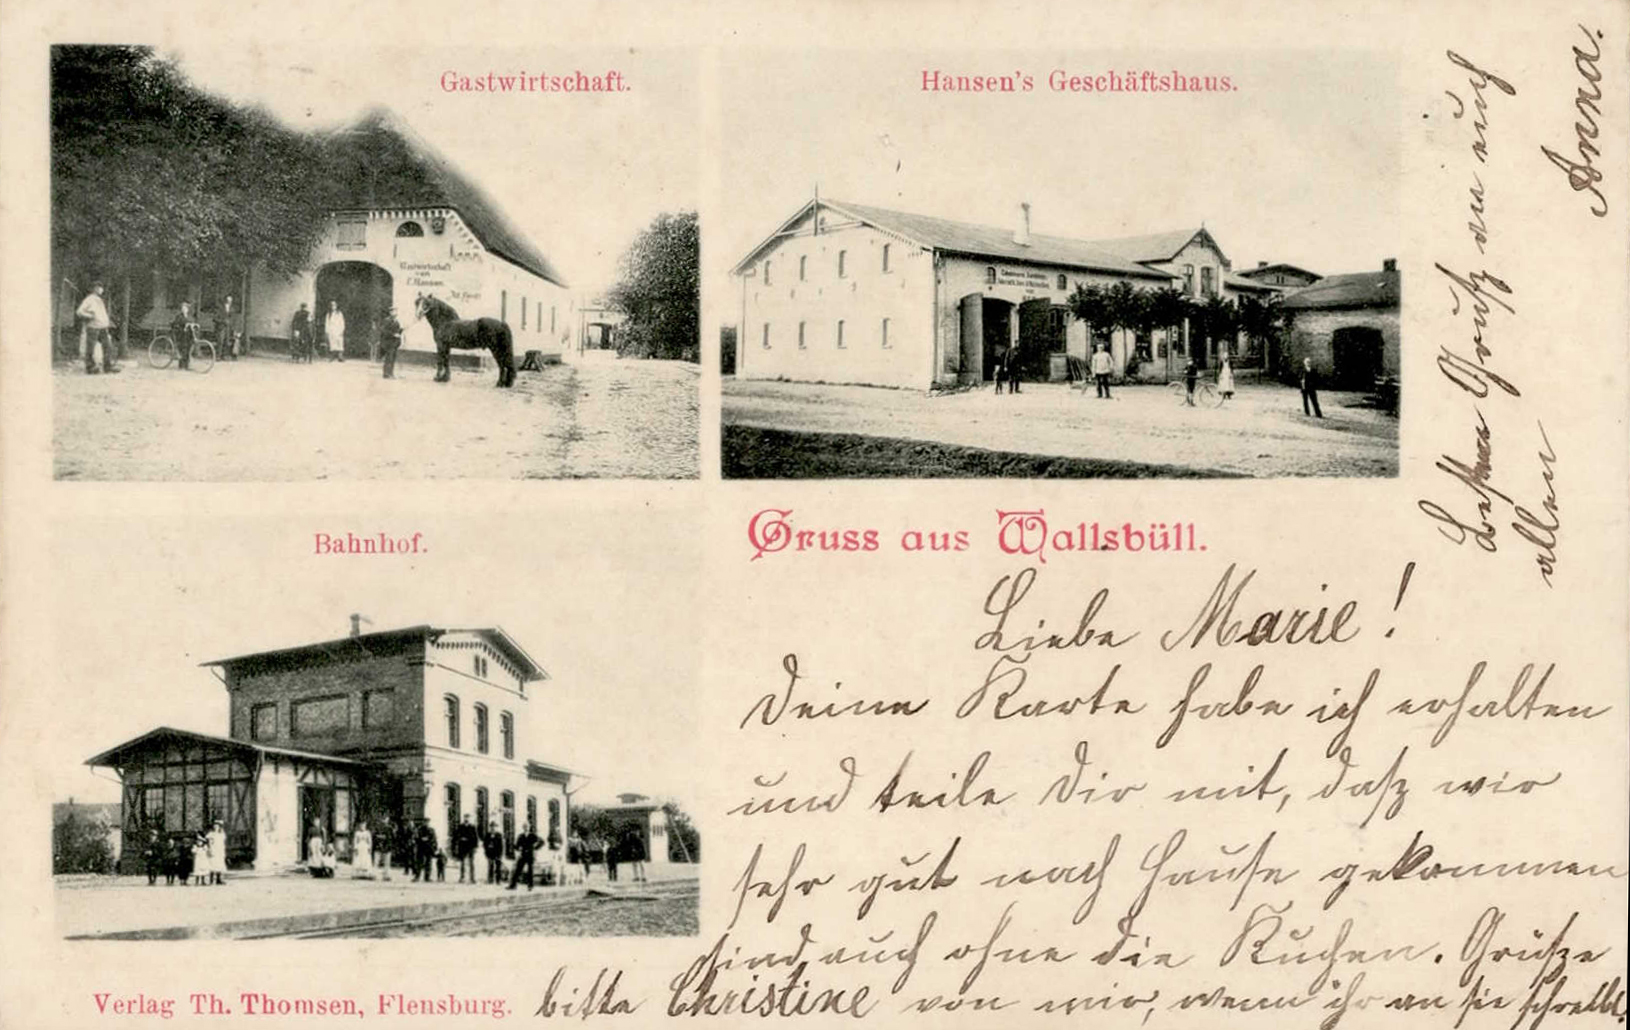 Gastwirtschaft.
Hansen's Geschäftshaus.
Gastwirtschaft
von
Bahnhof.
Gruss aus Wallsbüll.
Liebe Marie!
Deine Karte habe ich erhalten
und teile Dir mit, daß wir
sehr gut nach Hause gekommen
sind, auch ohne die Kuchen. Grüße
bitte Christine von mir, wenn ihr an sie schreibt.
Verlag Th. Thomsen, Flensburg.
Grüße an euch
allen
Anna.